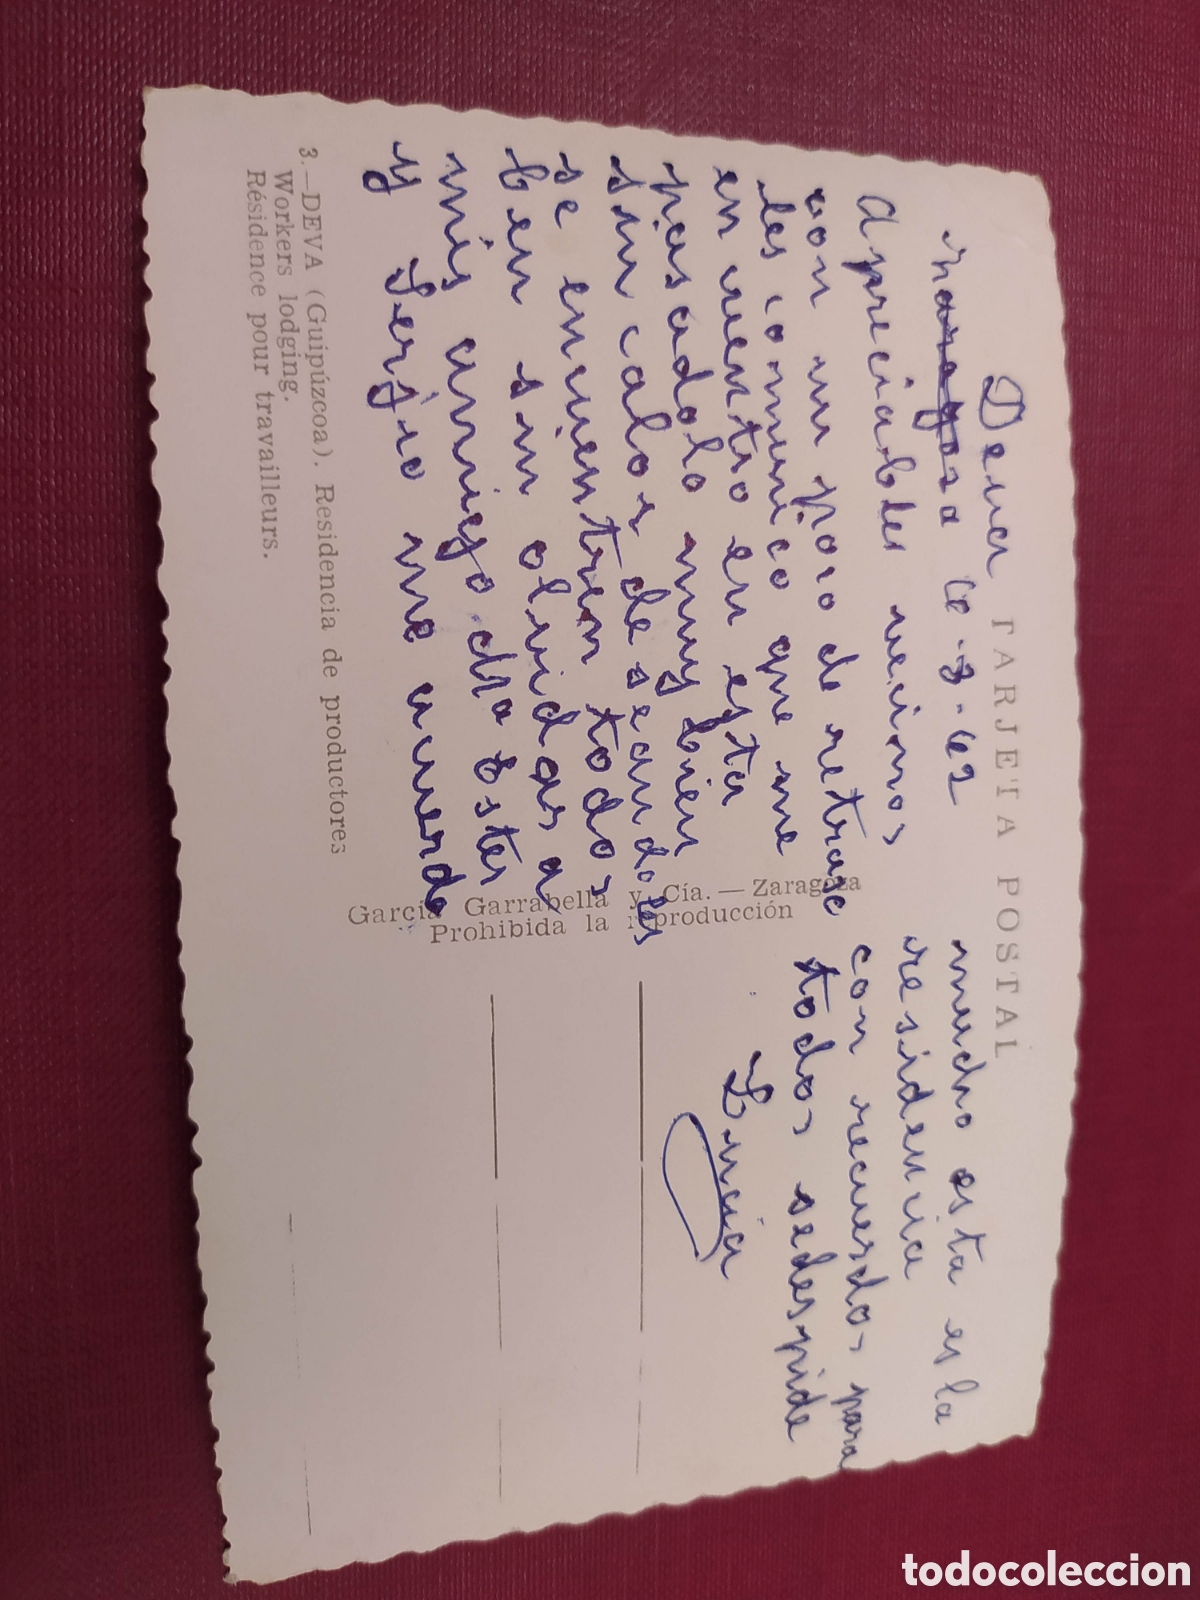 TARJETA POSTAL
Deva
6-8-62
Apreciables vecinos
con un poco de retraso
les comunico que me
encuentro en esta
pasadolo muy bien
sin calor deseandoles
se encuentren todos
bien sin olvidar a
mis amigo
y Serjio me acuerdo
mucho esta es la
residencia
con recuerdos para
todos sedespide
Lucia
García Garrabella y Cía. — Zaragoza
Prohibida la reproducción
3.—DEVA (Guipúzcoa). Residencia de productores
Workers lodging.
Résidence pour travailleurs.
todocoleccion